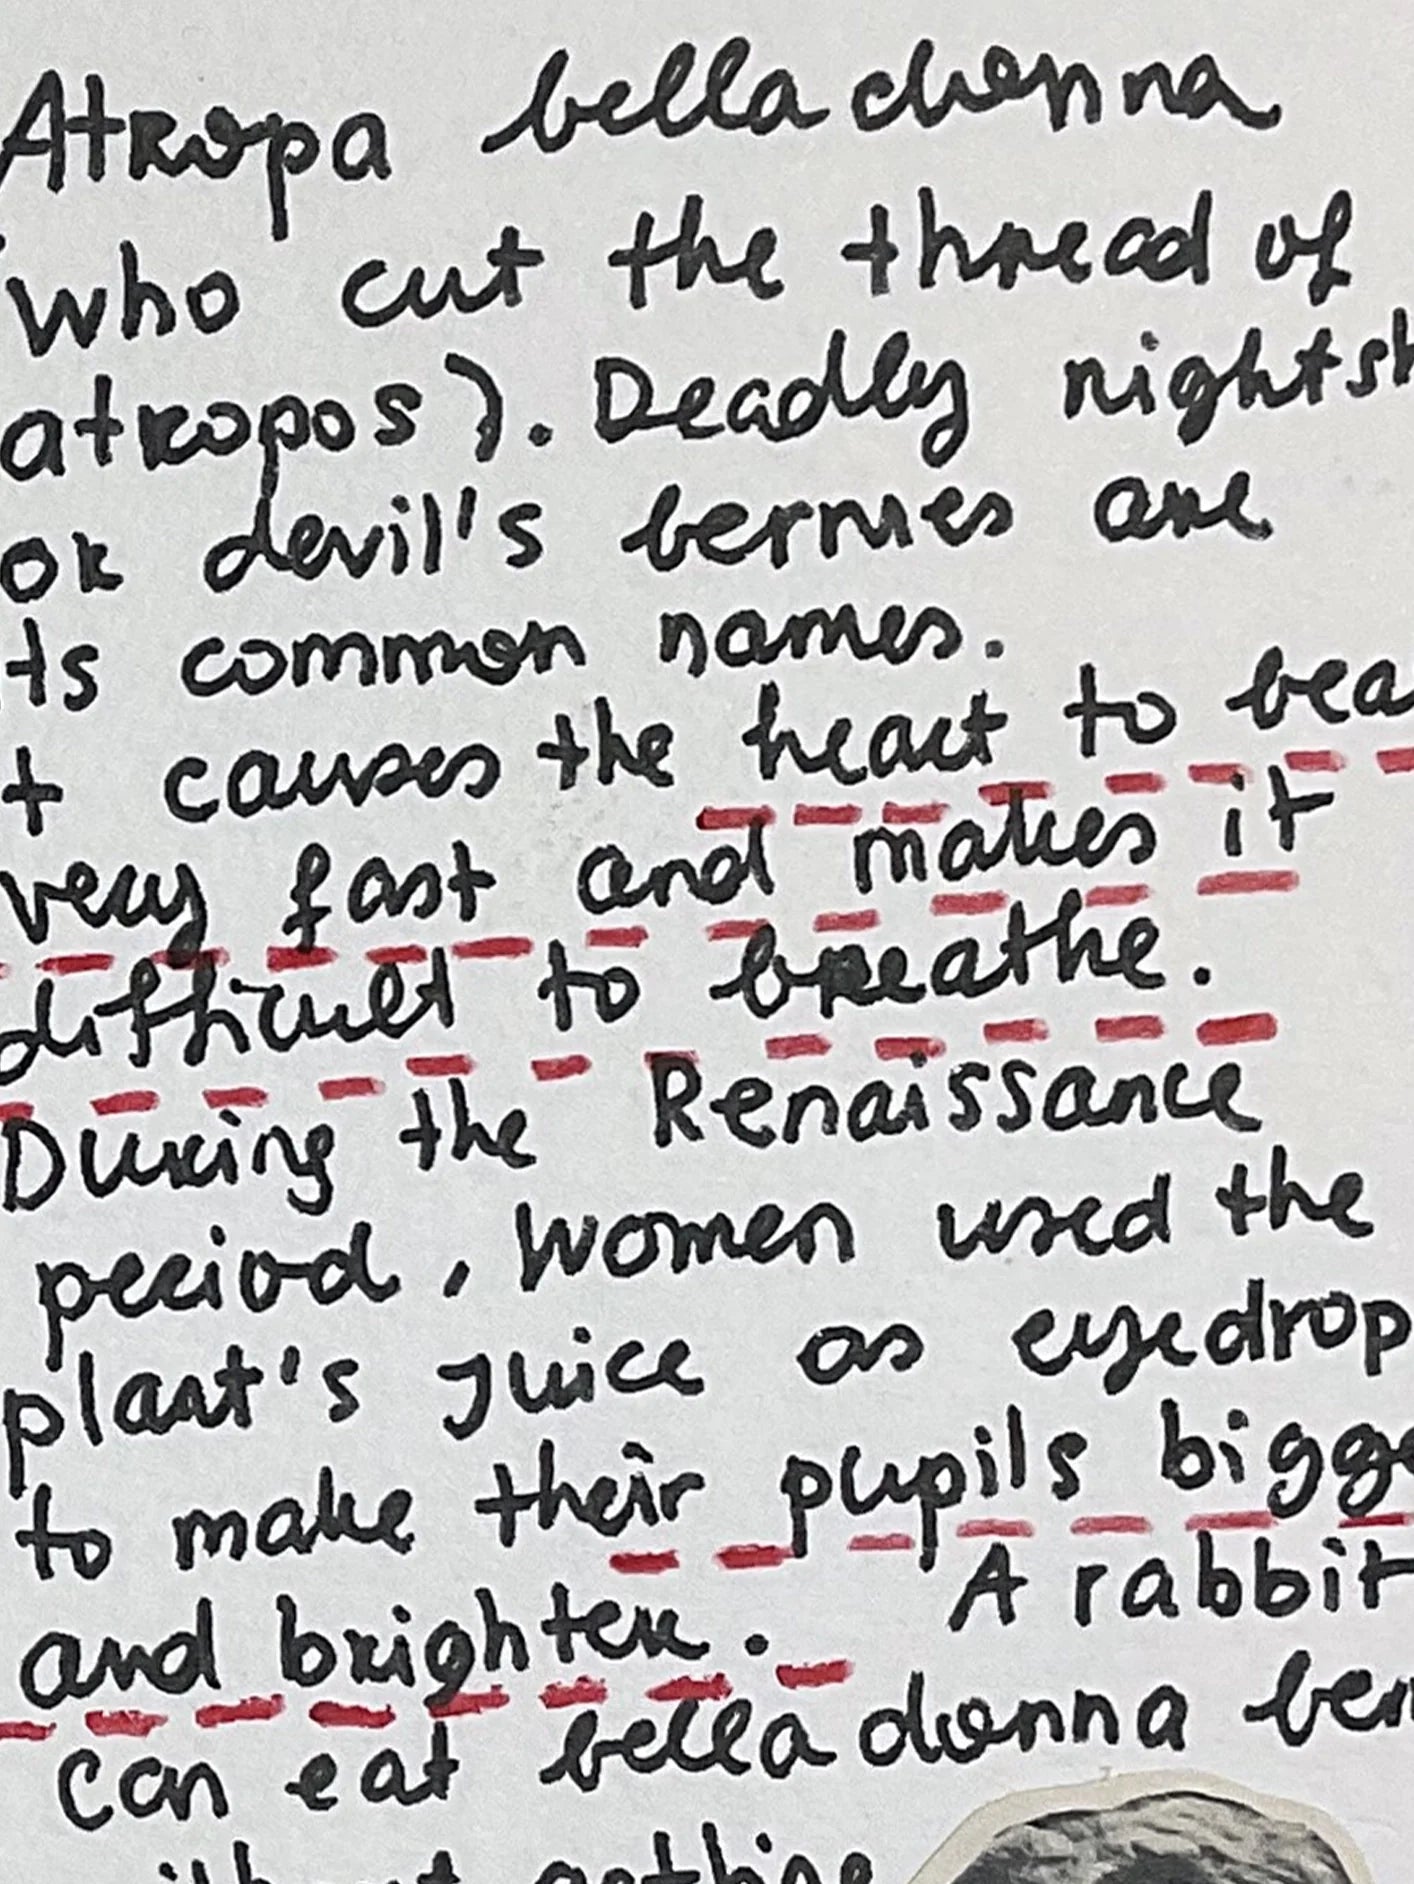 Atropa belladonna
who cut the thread of
atropos). Deadly nightsh
or devil's berries are
ts common names.
t causes the heart to bea
very fast and makes it
difficult to breathe.
During the Renaissance
period, Women used the
plant's juice as eyedrop
to make their pupils bigge
and brighter. A rabbit
can eat belladonna ber
ithout getting